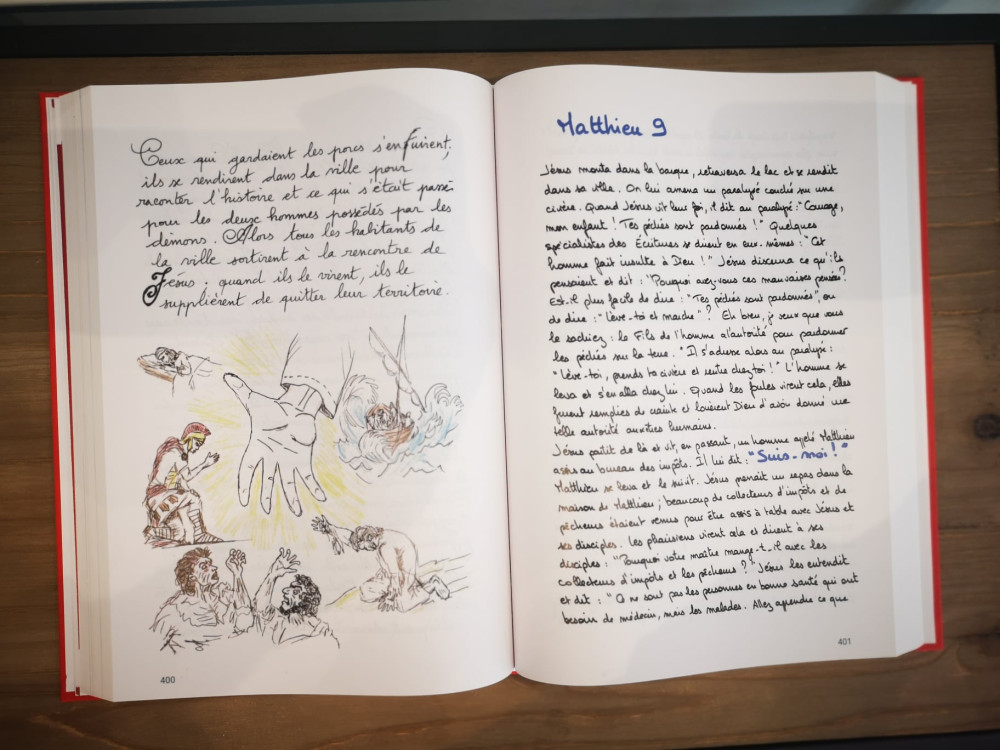 Ceux qui gardaient les porcs s'enfuirent;
ils se rendirent dans la ville pour
raconter l'histoire et ce qui s'était passé
pour les deux hommes possédés par les
démons. Alors tous les habitants de
la ville sortirent à la rencontre de
Jésus. quand ils le virent, ils le
supplièrent de quitter leur territoire.
400
Matthieu 9
Jésus monta dans la barque, retraversa le lac et se rendit
dans sa ville. On lui amena un paralysé couché sur une
civière. Quand Jésus vit leur foi, il dit au paralysé : "Courage,
mon enfant ! Tes péchés sont pardonnés !" Quelques
spécialistes des Écritures se dirent en eux-mêmes : "Cet
homme fait insulte à Dieu !" Jésus discerna ce qu'ils
pensaient et dit : "Pourquoi avez-vous ces mauvaises pensées?
Est-il plus facile de dire : "Tes péchés sont pardonnés", ou
de dire : "Lève-toi et marche" ? Eh bien, je veux que vous
le sachiez : le Fils de l'homme a l'autorité pour pardonner
les péchés sur la terre." Il s'adresse alors au paralysé :
"Lève-toi, prends ta civière et rentre chez toi !" L'homme se
leva et s'en alla chez lui. Quand les foules virent cela, elles
furent remplies de crainte et louèrent Dieu d'avoir donné une
telle autorité aux êtres humains.
Jésus partit de là et vit, en passant, un homme appelé Matthieu
assis au bureau des impôts. Il lui dit : "Suis-moi !"
Matthieu se leva et le suivit. Jésus prenait un repas dans la
maison de Matthieu ; beaucoup de collecteurs d'impôts et de
pécheurs étaient venus pour être assis à table avec Jésus et
ses disciples. Les pharisiens virent cela et dirent à ses
disciples : "Pourquoi votre maître mange-t-il avec les
collecteurs d'impôts et les pécheurs ?" Jésus les entendit
et dit : "Ce ne sont pas les personnes en bonne santé qui ont
besoin de médecin, mais les malades. Allez apprendre ce que
401